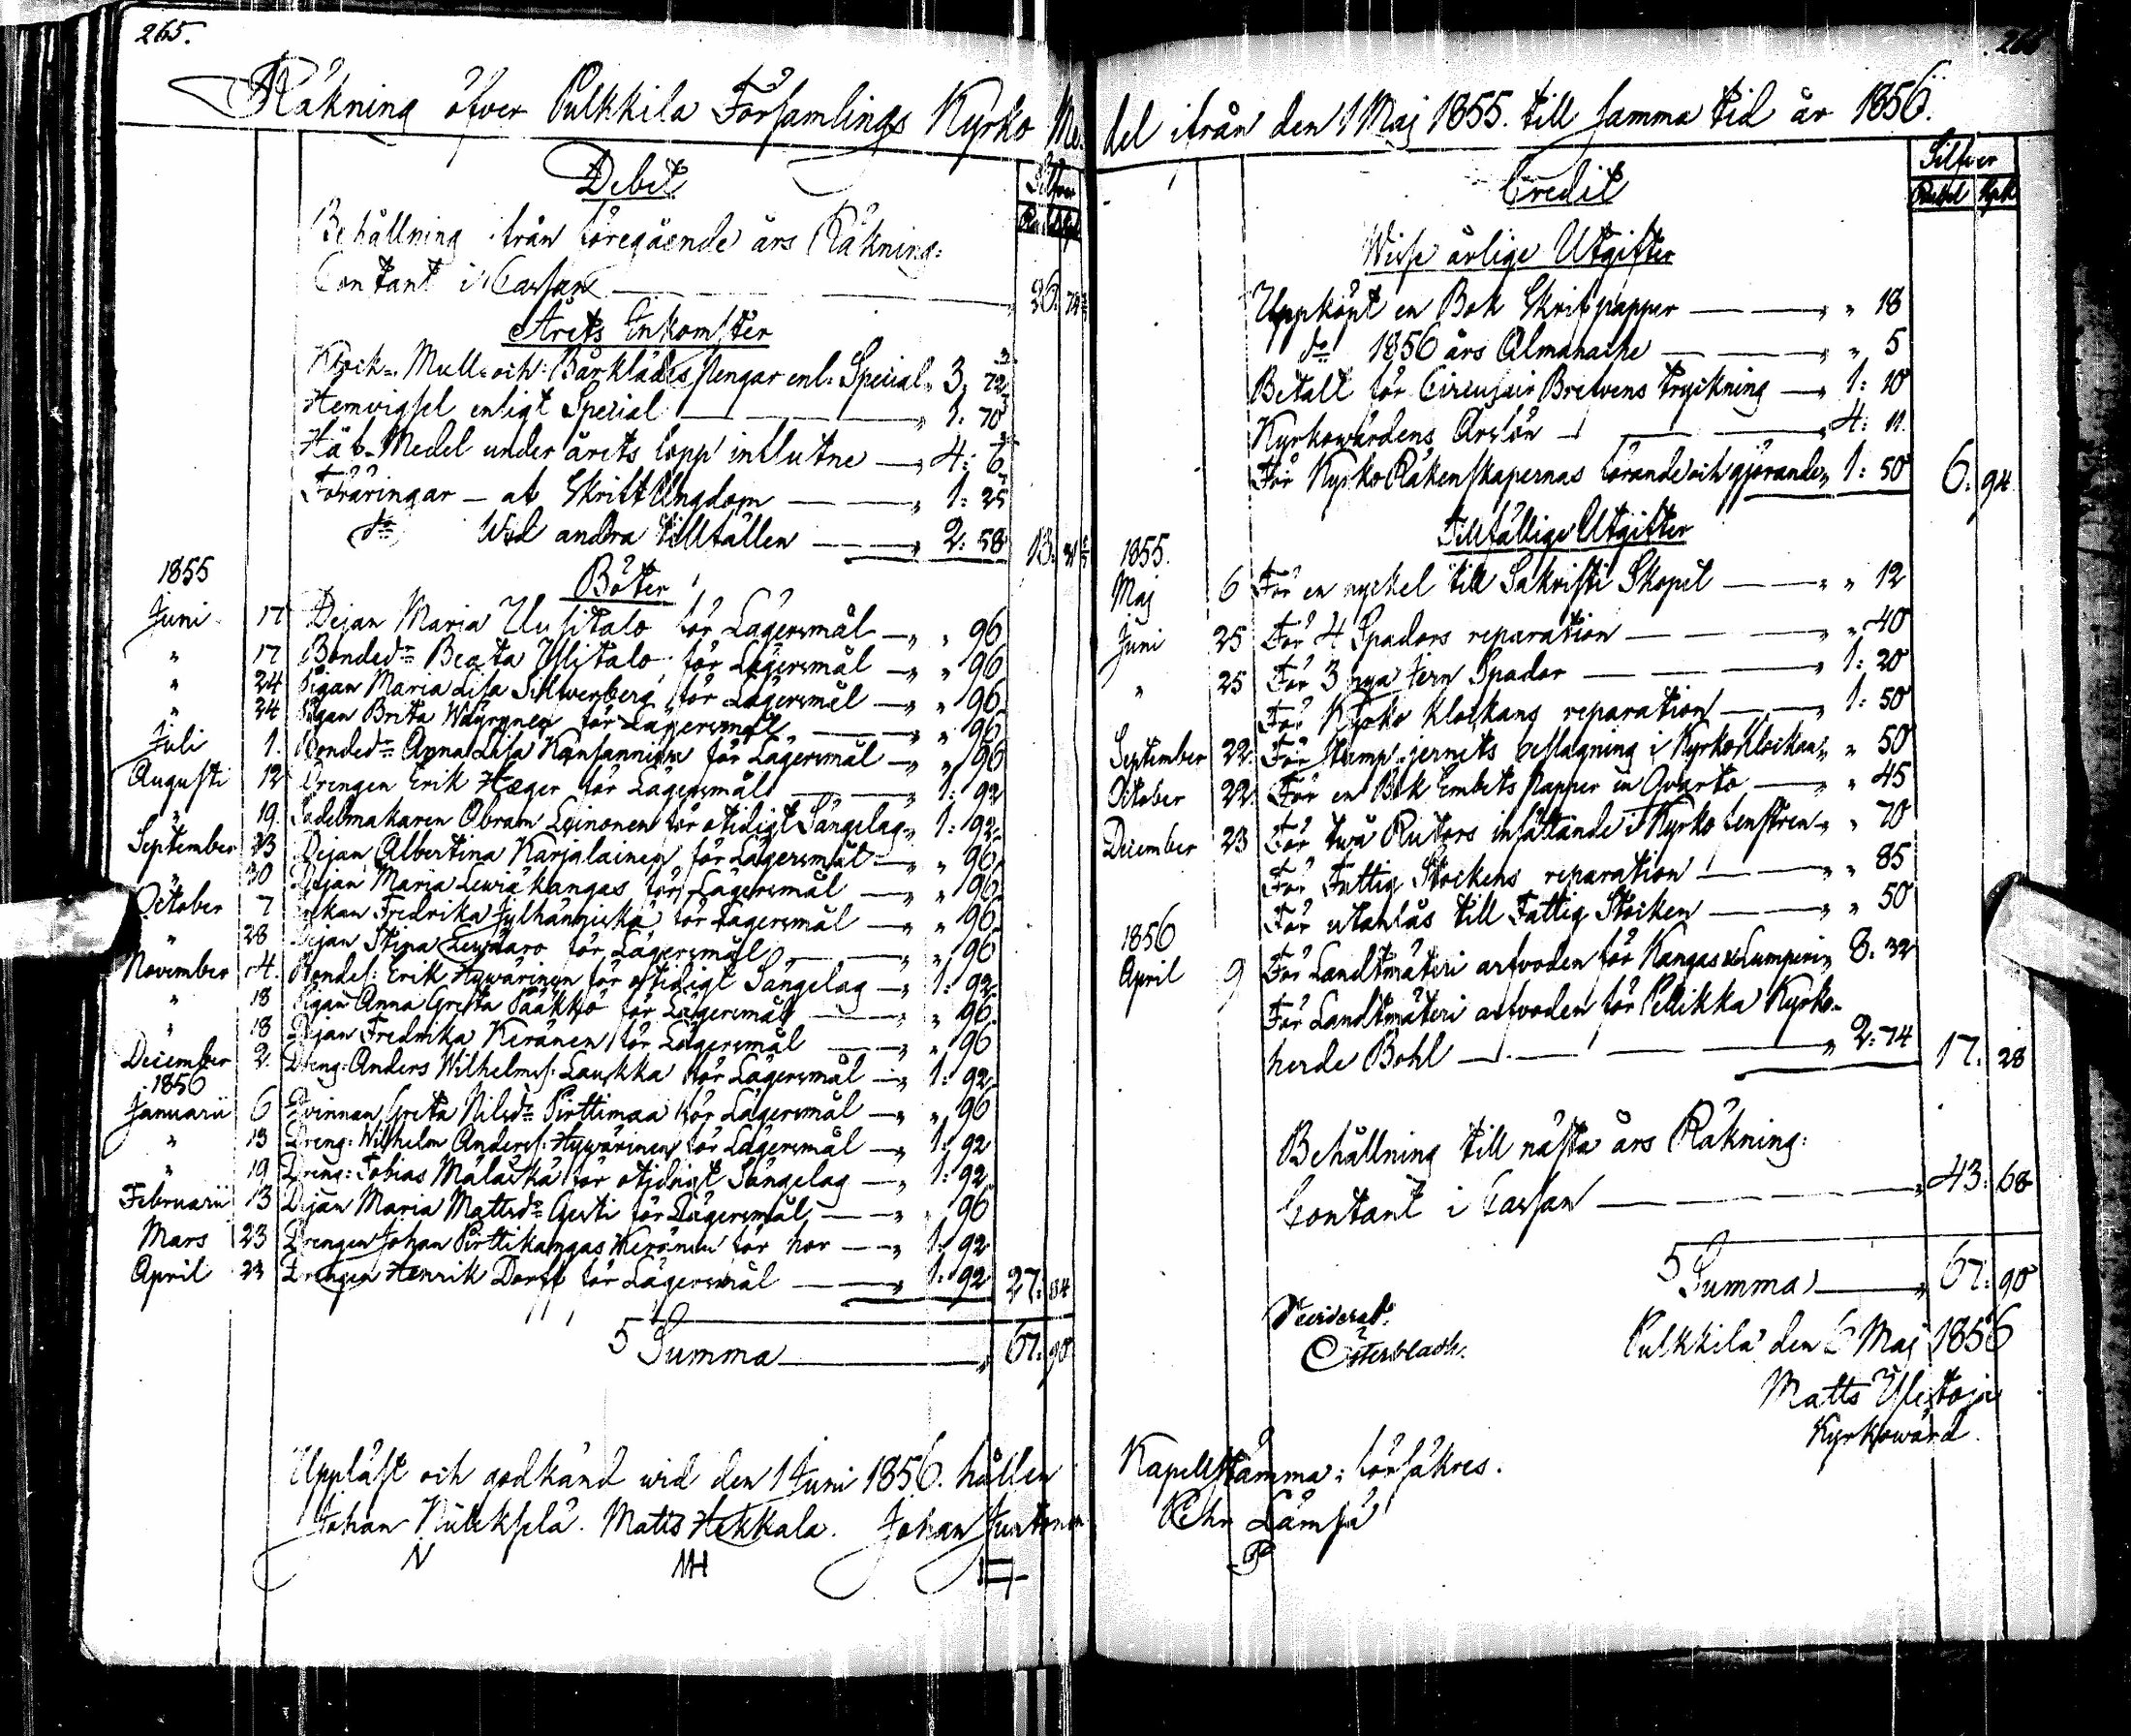 265.
Räkning öfver Pulkkila Församlings Kyrko Me-
Debet
Silfver
Behållning ifrån föregående års Räkning:
Contant i Cassan — 26.
Årets Inkomster
Klock- Mull- och Bårklädes pengar enl. Special „ 3. 72
Hemvigsel enligt Special — „ 1. 70
Håf-Medel under årets lopp influtne — „ 4. 6
Föräringar — af Skrift Ungdom — „ 1: 25
do Wid andra tillfällen — „ 2: 58 13:
1855
Böter
Juni 17 Pejan Maria Uusitalo för Lägersmål — „ „ 96
„ 17 Bonded:r Beata Ylitalo för Lägersmål — „ „ 96
„ 24 Pigan Maria Lisa Silfwerberg för Lägersmål — „ „ 96
„ 24 Pigan Brita Wäyrynen för Lägersmål — „ „ 96
Juli 1. Bonded:r Anna Lisa Kansanniva för Lägersmål — „ „ 96
Augusti 12 Drengen Erik Hæger för Lägersmål — „ 1: 92
„ 19. Sadelmakaren Abram Leinonen för otidigt Sängelag „ 1: 92
September 23 Pejan Albertina Karjalainen för Lägersmål — „ „ 96
„ 30 Pejan Maria Lewiäkangas för Lägersmål — „ „ 96
October 7 Enkan Fredrika Jylhänniska för Lägersmål — „ „ 96
„ 28 Pejan Stina för Lägersmål — „ „ 96
November 4. Bondes: Erik Hywärinen för otidigt Sängelag — „ 1: 92
„ 18 Pigan Anna Greta Pääkkö för Lägersmål — „ „ 96
„ 18 Pejan Fredrika Keränen för Lägersmål — „ „ 96
December 2. Dreng: Anders Wilhelmss: Laukka för Lägersmål — „ 1: 92
1856
Januarii 6 Qvinnan Greta Nilsd:r Pirttimaa för Lägersmål — „ „ 96
„ 13 Dreng: Wilhelm Anderss: Hywärinen för Lägersmål — „ 1: 92
„ 19 Dreng: Tobias Mäläskä för otidigt Sängelag — „ 1: 92
Februarii 13 Pejan Maria Mattsd:r för Lägersmål — „ „ 96
Mars 23 Drengen Johan Pirttikangas Keränen för hor — „ 1: 92
April 23 Drengen Henrik Dorff för Lägersmål — „ 1: 92 27: 84
Summa — „ 67: 90
Uppläst och godkänd wid den 1 Juni 1856. hållen
Johan Matts Hekkala. Johan Juntunen
N MH
del ifrån den 1 Maj 1855. till samma tid år 1856.
Credit
Silfver
Rubel Kpk
Wisse årlige Utgifter
Uppköpt en Bok Skrifpapper — „ „ 18
do 1856 års Almanache — „ „ 5
Betalt för Circulair Brefvens tryckning — „ 1: 10
Kyrkowärdens Årslön — „ 4: 11.
För Kyrko Räkenskapernas förande och gjörande „ 1: 50 6: 94
Tillfällige Utgifter
1855.
Maj 6 För en nyckel till Sakristi Skåpet — „ „ 12
Juni 25 För 4 Spadars reparation — „ „ 40
„ 25 För 3 nya Jern Spadar — „ 1: 20
För Kyrko klockans reparation — „ 1: 50
September 22. För jernets beslagning i Kyrkoklockan „ „ 50
October 22. För en Bok Embets Papper in Qvarto — „ „ 45
December 23 För twå Rutors insättande i Kyrko fenstren „ „ 70
För Fattig Stockens reparation — „ „ 85
För utanlås till Fattig Stocken — „ „ 50
1856
April 9 För Landtmäteri arfvoden för Kangas & Lumperi „ 8. 32
För Landtmäteri arfvoden för Pellikka Kyrko-
herde Bohl — „ 2: 74 17: 28
Behållning till nästa års Räkning:
Contant i Cassan — „ 43: 68
Summa — „ 67: 90
Österbladh.
Pulkkila den 6 Maj 1856
Matts
Kyrkowärd.
Kapellstämma; försäkres.
Lämsä